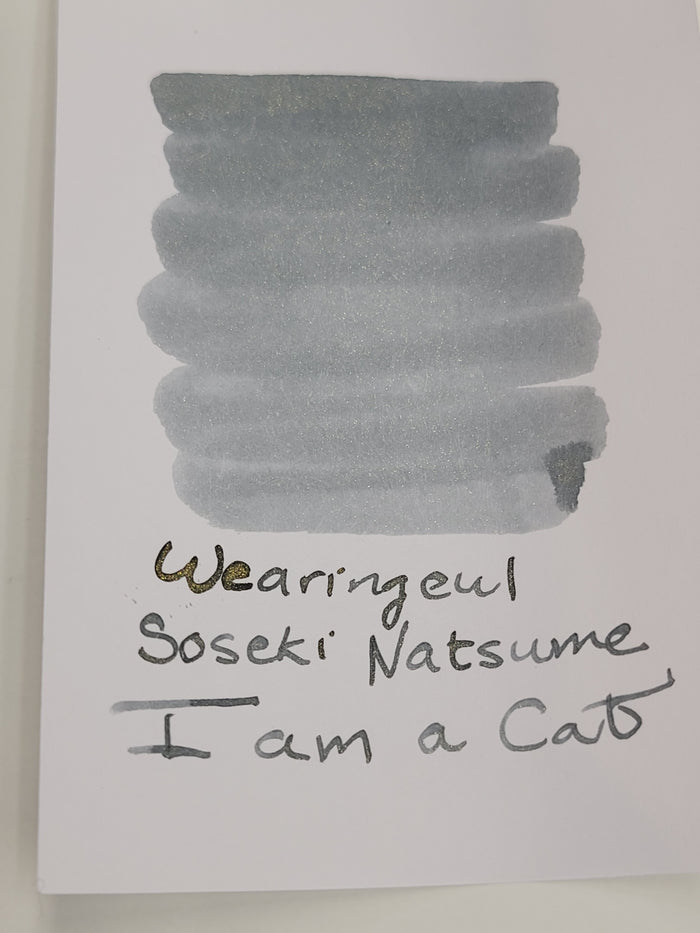 Wearingeul
Soseki Natsume
I am a Cat